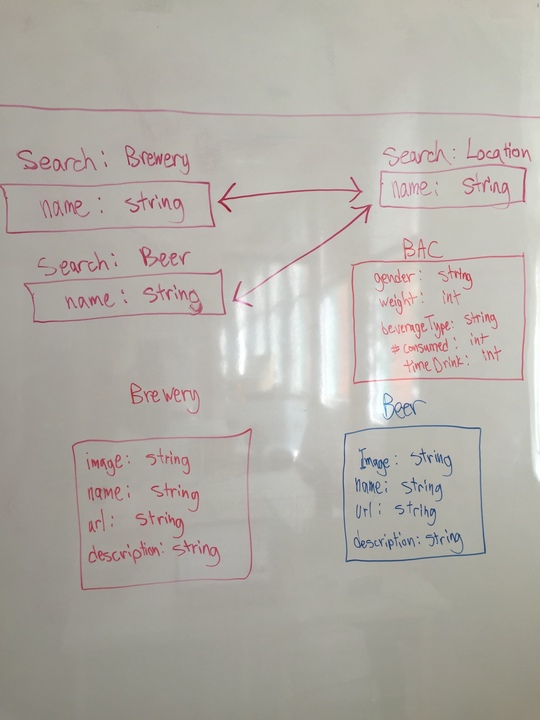 Search: Brewery
name: string
Search: Location
name: string
Search: Beer
name: string
BAC
gender: string
weight: int
beverageType: string
#consumed: int
timeDrink: int
Brewery
image: string
name: string
url: string
description: string
Beer
Image: string
name: string
url: string
description: string